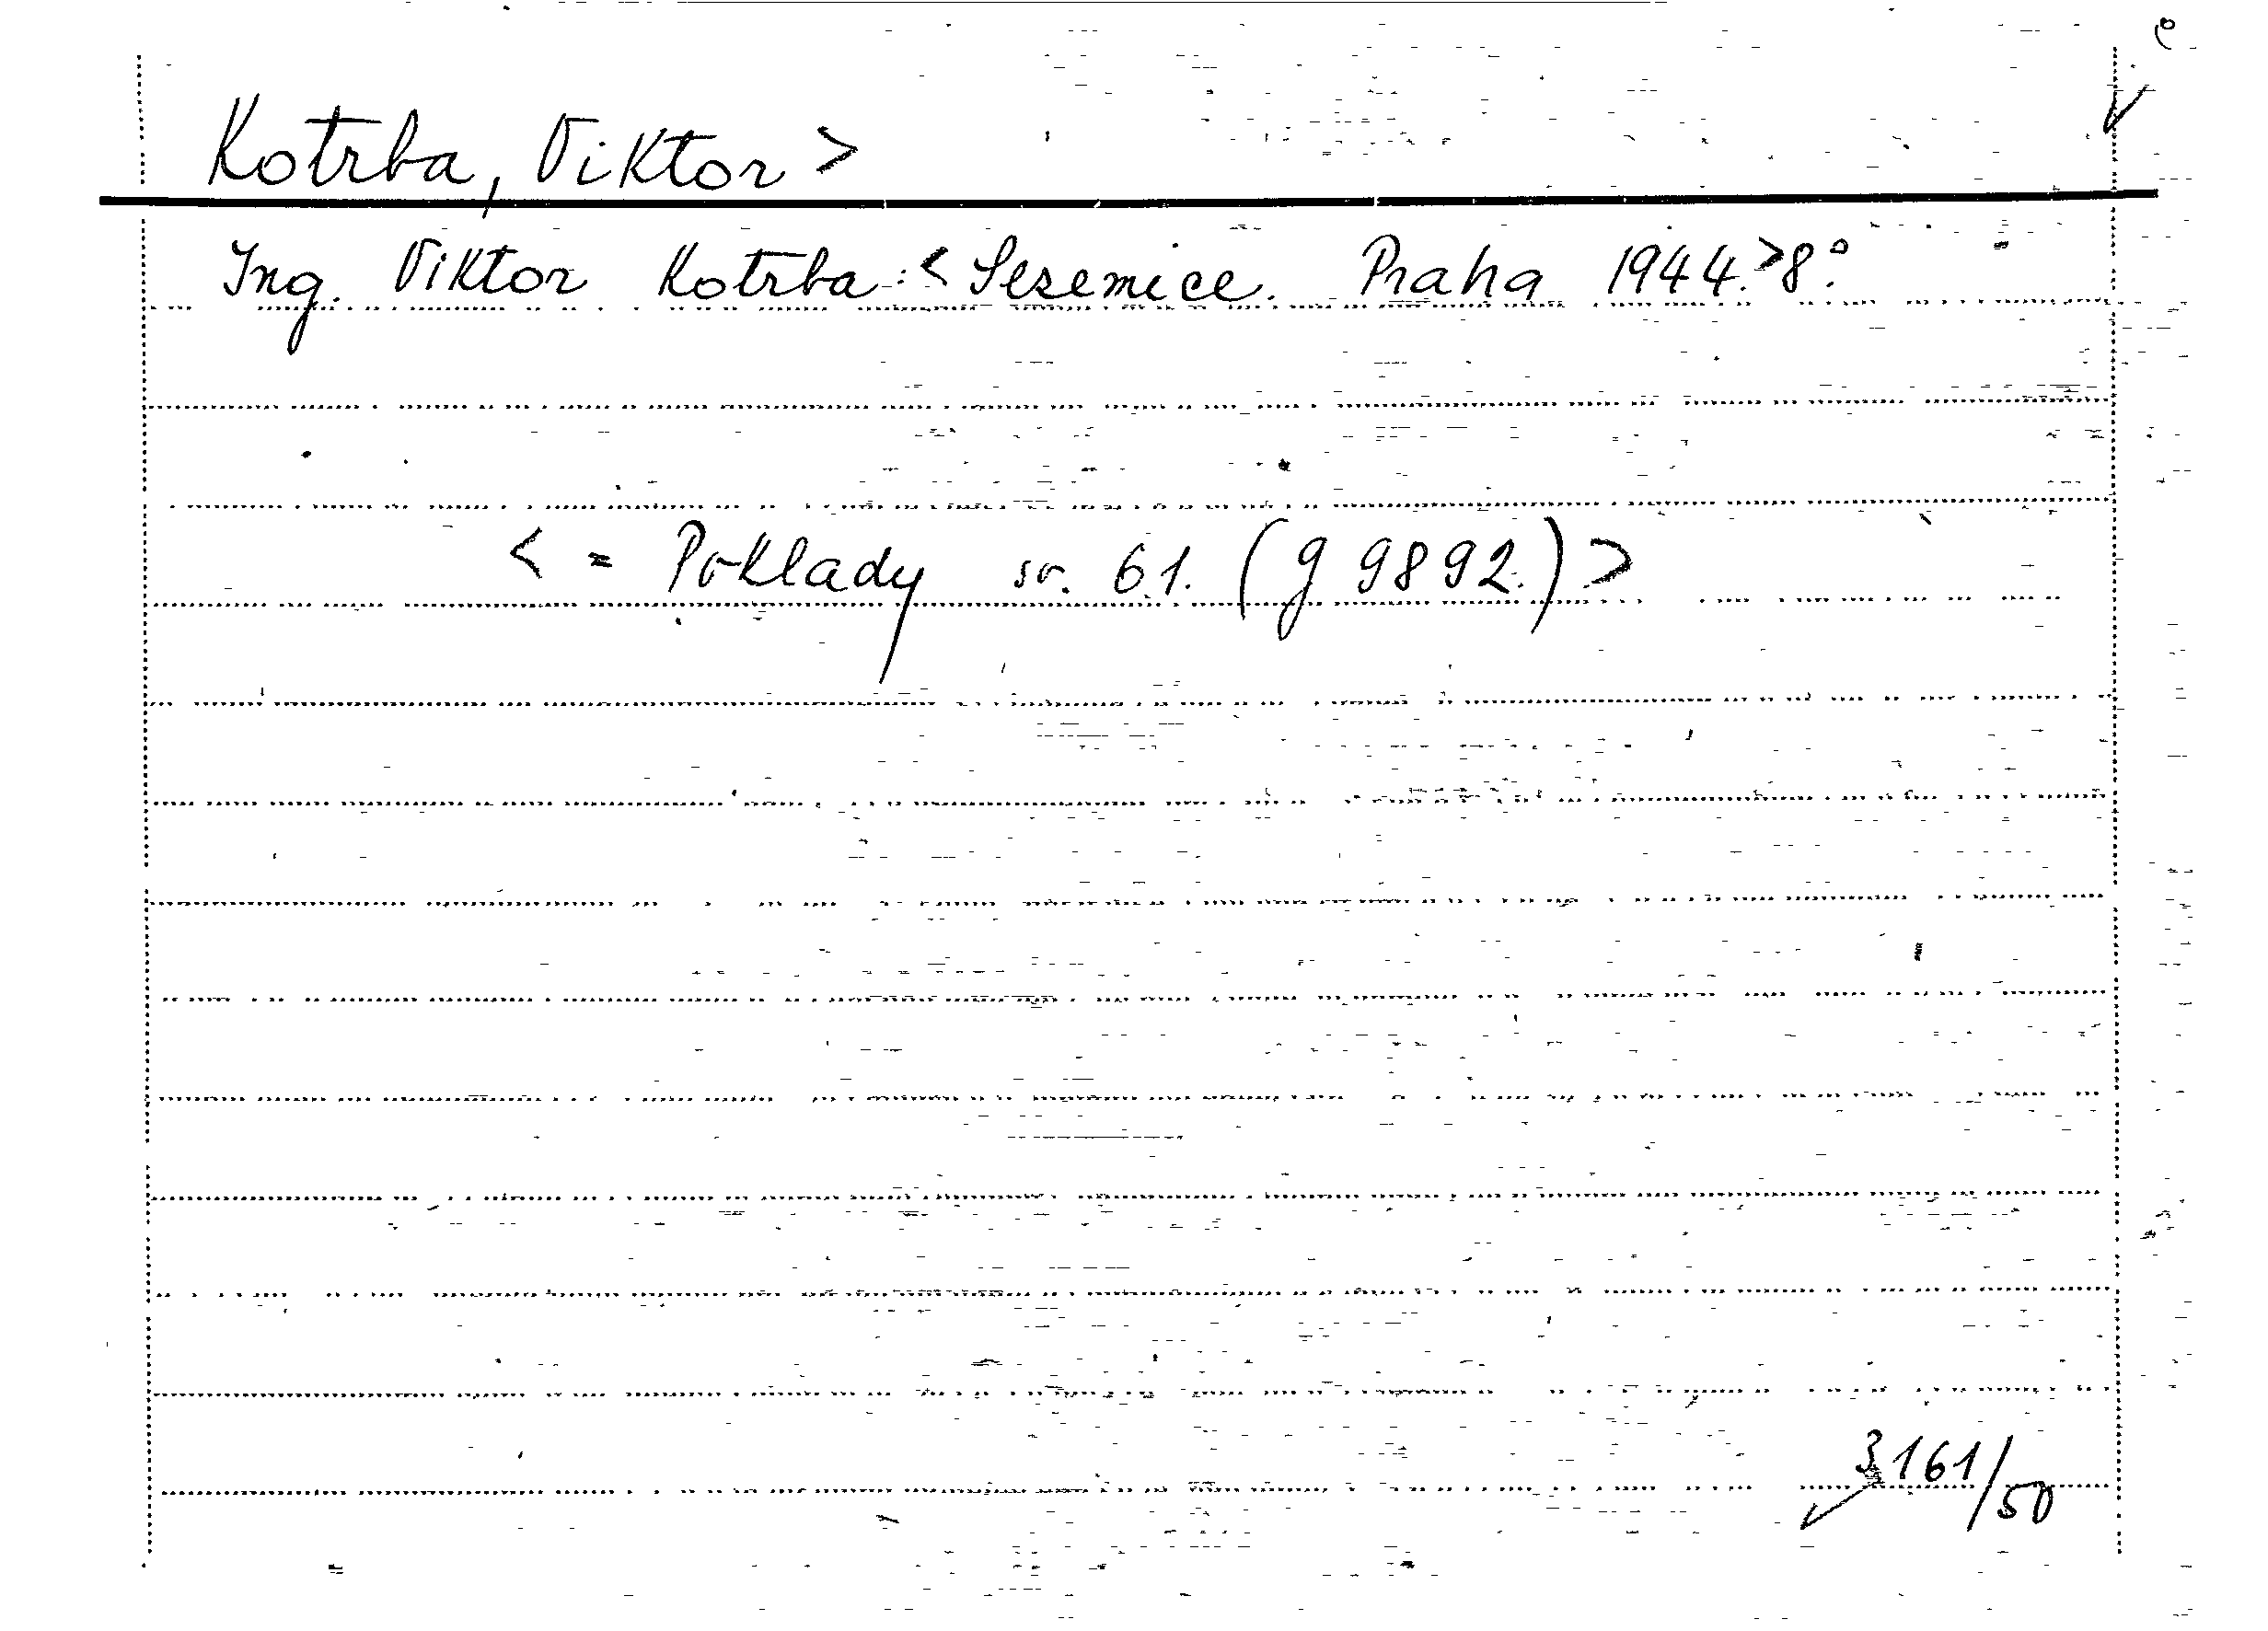 Kotrba, Viktor >
Ing. Viktor Kotrba: < Sezemice. Praha 1944. > 8°.
< = Poklady sv. 61. (g 9892.) >
3161/50